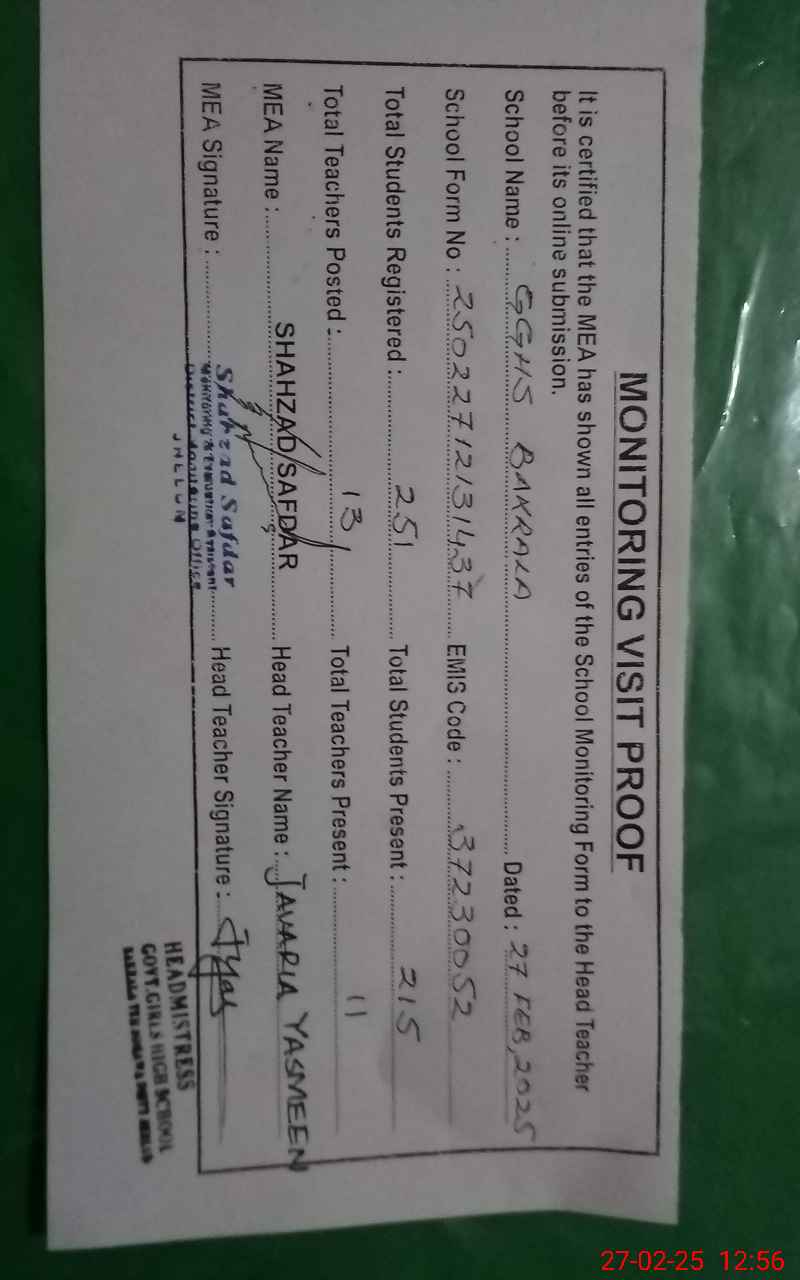 MONITORING VISIT PROOF
It is certified that the MEA has shown all entries of the School Monitoring Form to the Head Teacher
before its online submission.
School Name : GGHS BAKRALA Dated : 27 FEB, 2025
School Form No : 25022712131437 EMIS Code : 37230052
Total Students Registered : 251 Total Students Present : 215
Total Teachers Posted : 13 Total Teachers Present : 11
MEA Name : SHAHZAD SAFDAR Head Teacher Name : JAVARIA YASMEEN
MEA Signature : Head Teacher Signature :
Shahzad Safdar
Monitoring & Evaluation Assistant
District Monitoring Office
JHELUM
HEADMISTRESS
GOVT. GIRLS HIGH SCHOOL
27-02-25 12:56